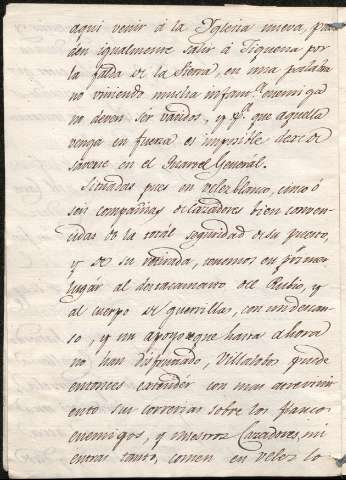 aqui venir á la Yglesia nueva, pue
den igualmente salir á Siguena por
la falda de la Sierra, en una palabra
no viniendo mucha infant.ª enemiga
no deven ser vatidos, y p.ª que aquella
venga en fuerza es imposible dexe de
saverse en el Quartel General.
Situadas pues en velez blanco, cinco ó
seis compañias de Cazadores bien conven
cidas de la total seguridad de su puesto,
y de su retirada, tenemos en primer
lugar al destacamento del Rubio, y
al cuerpo de guerrillas, con un descan
so, y un apoyo que hasta ahora
no han disfrutado, Villalobos puede
entonces extender con mas atrevimi
ento sus correrias sobre los flancos
enemigos, y nuestros Cazadores, mi
entras tanto, comen en velez lo